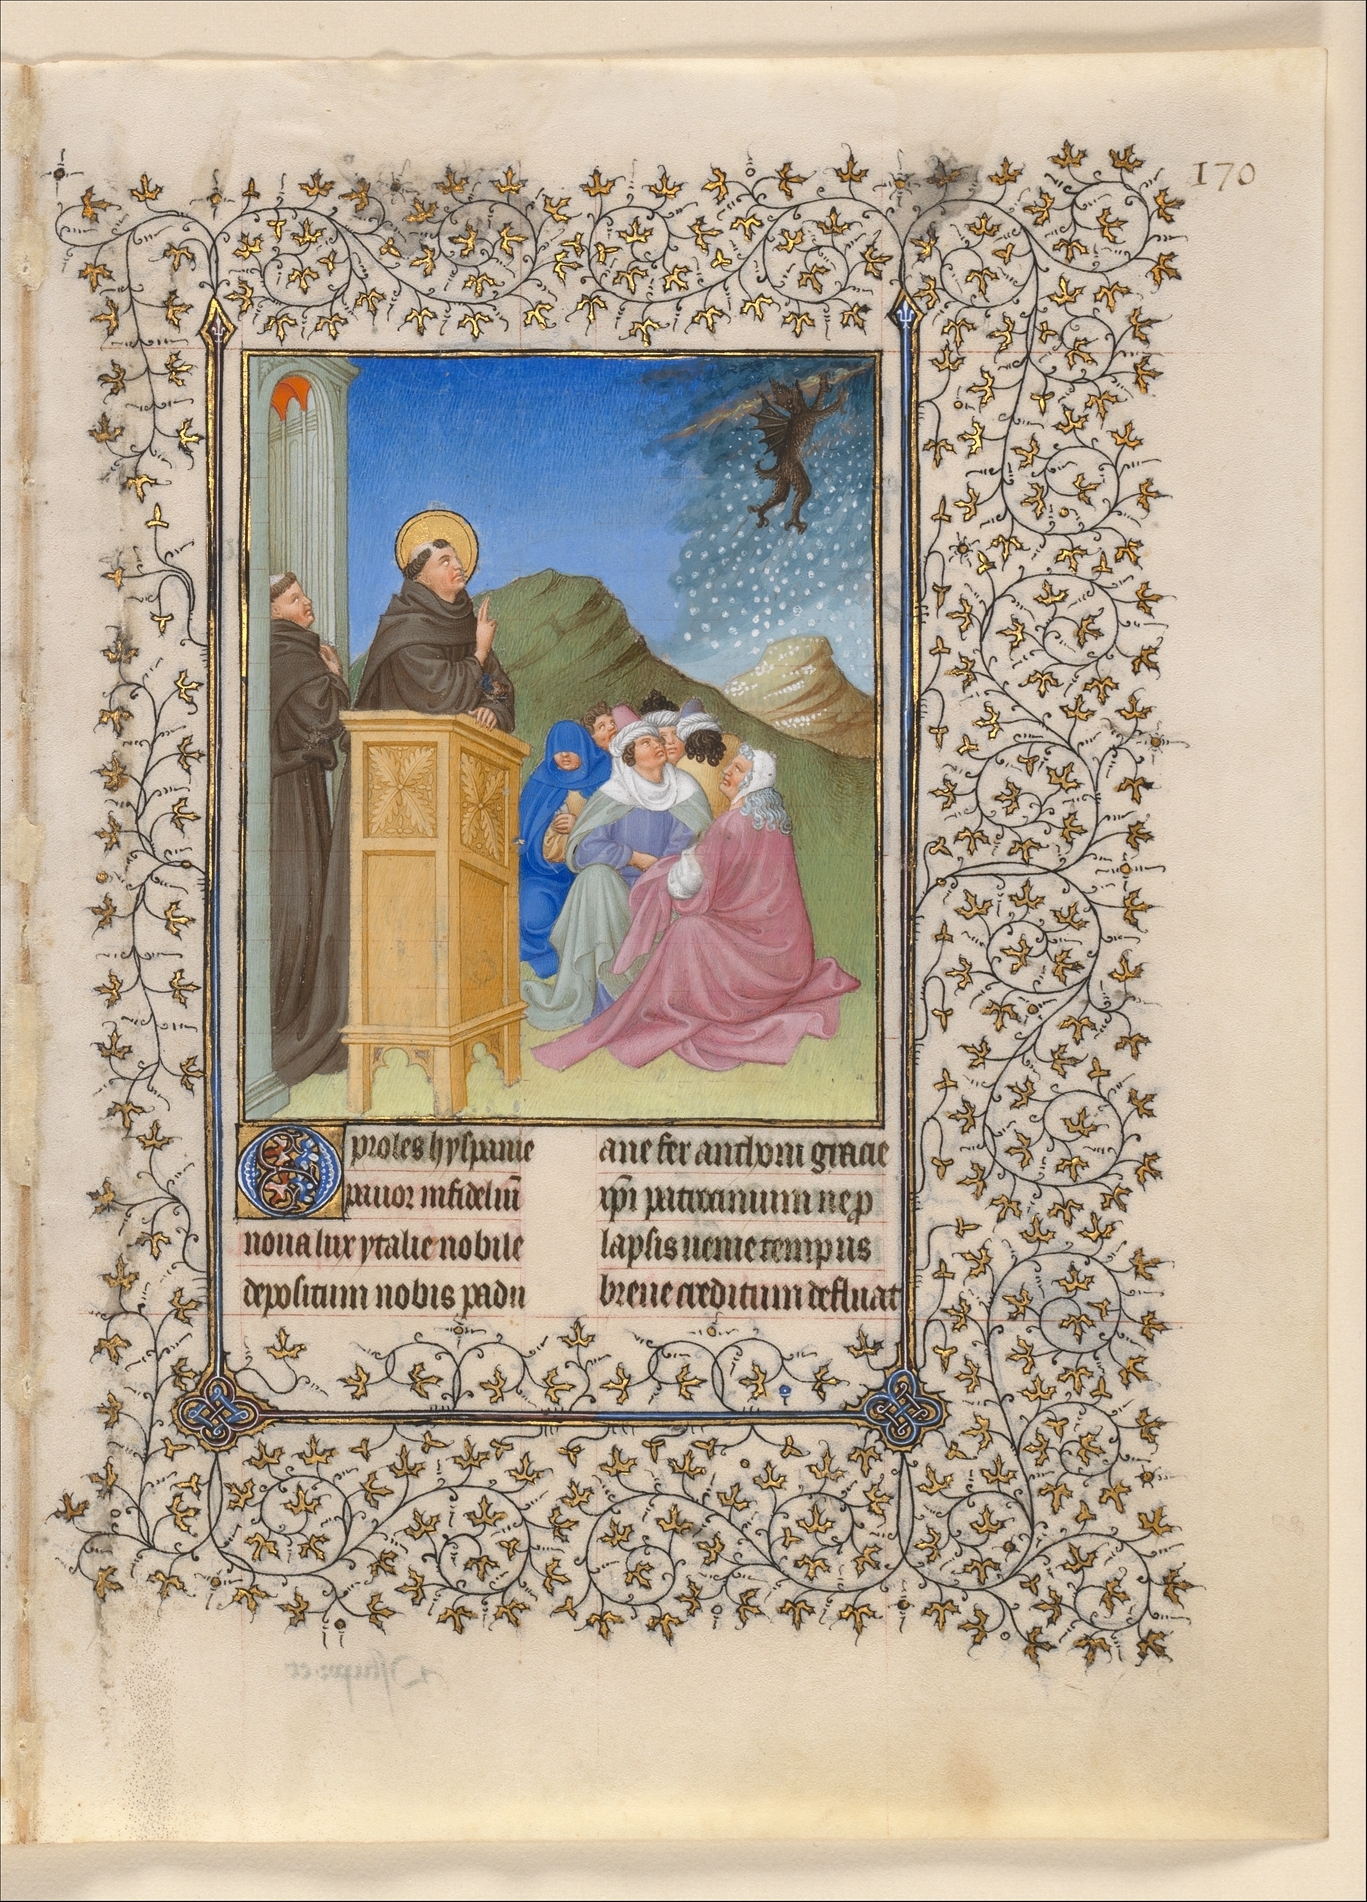 170
O proles hyspanie
pauor infideliū
noua lux ytalie nobile
depositum nobis padu
ane fer anthoni gracie
xp̄i patrocinium ne ꝓ
lapsis uenie tempus
breue creditum defluat